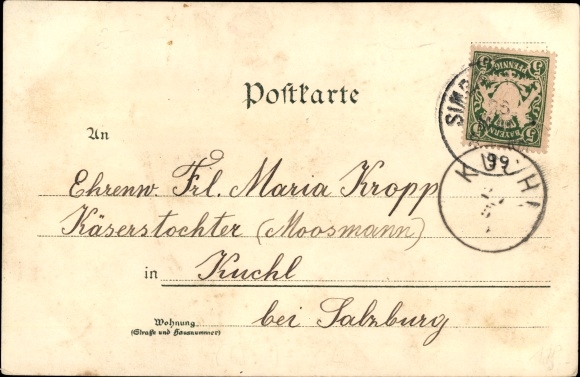 Postkarte
An
Ehrenw. Frl. Maria Kropp
Käserstochter (Moosmann)
in Kuchl
bei Salzburg
Wohnung
(Straße und Hausnummer)
5 PFENNIG 5
5 BAYERN 5
99